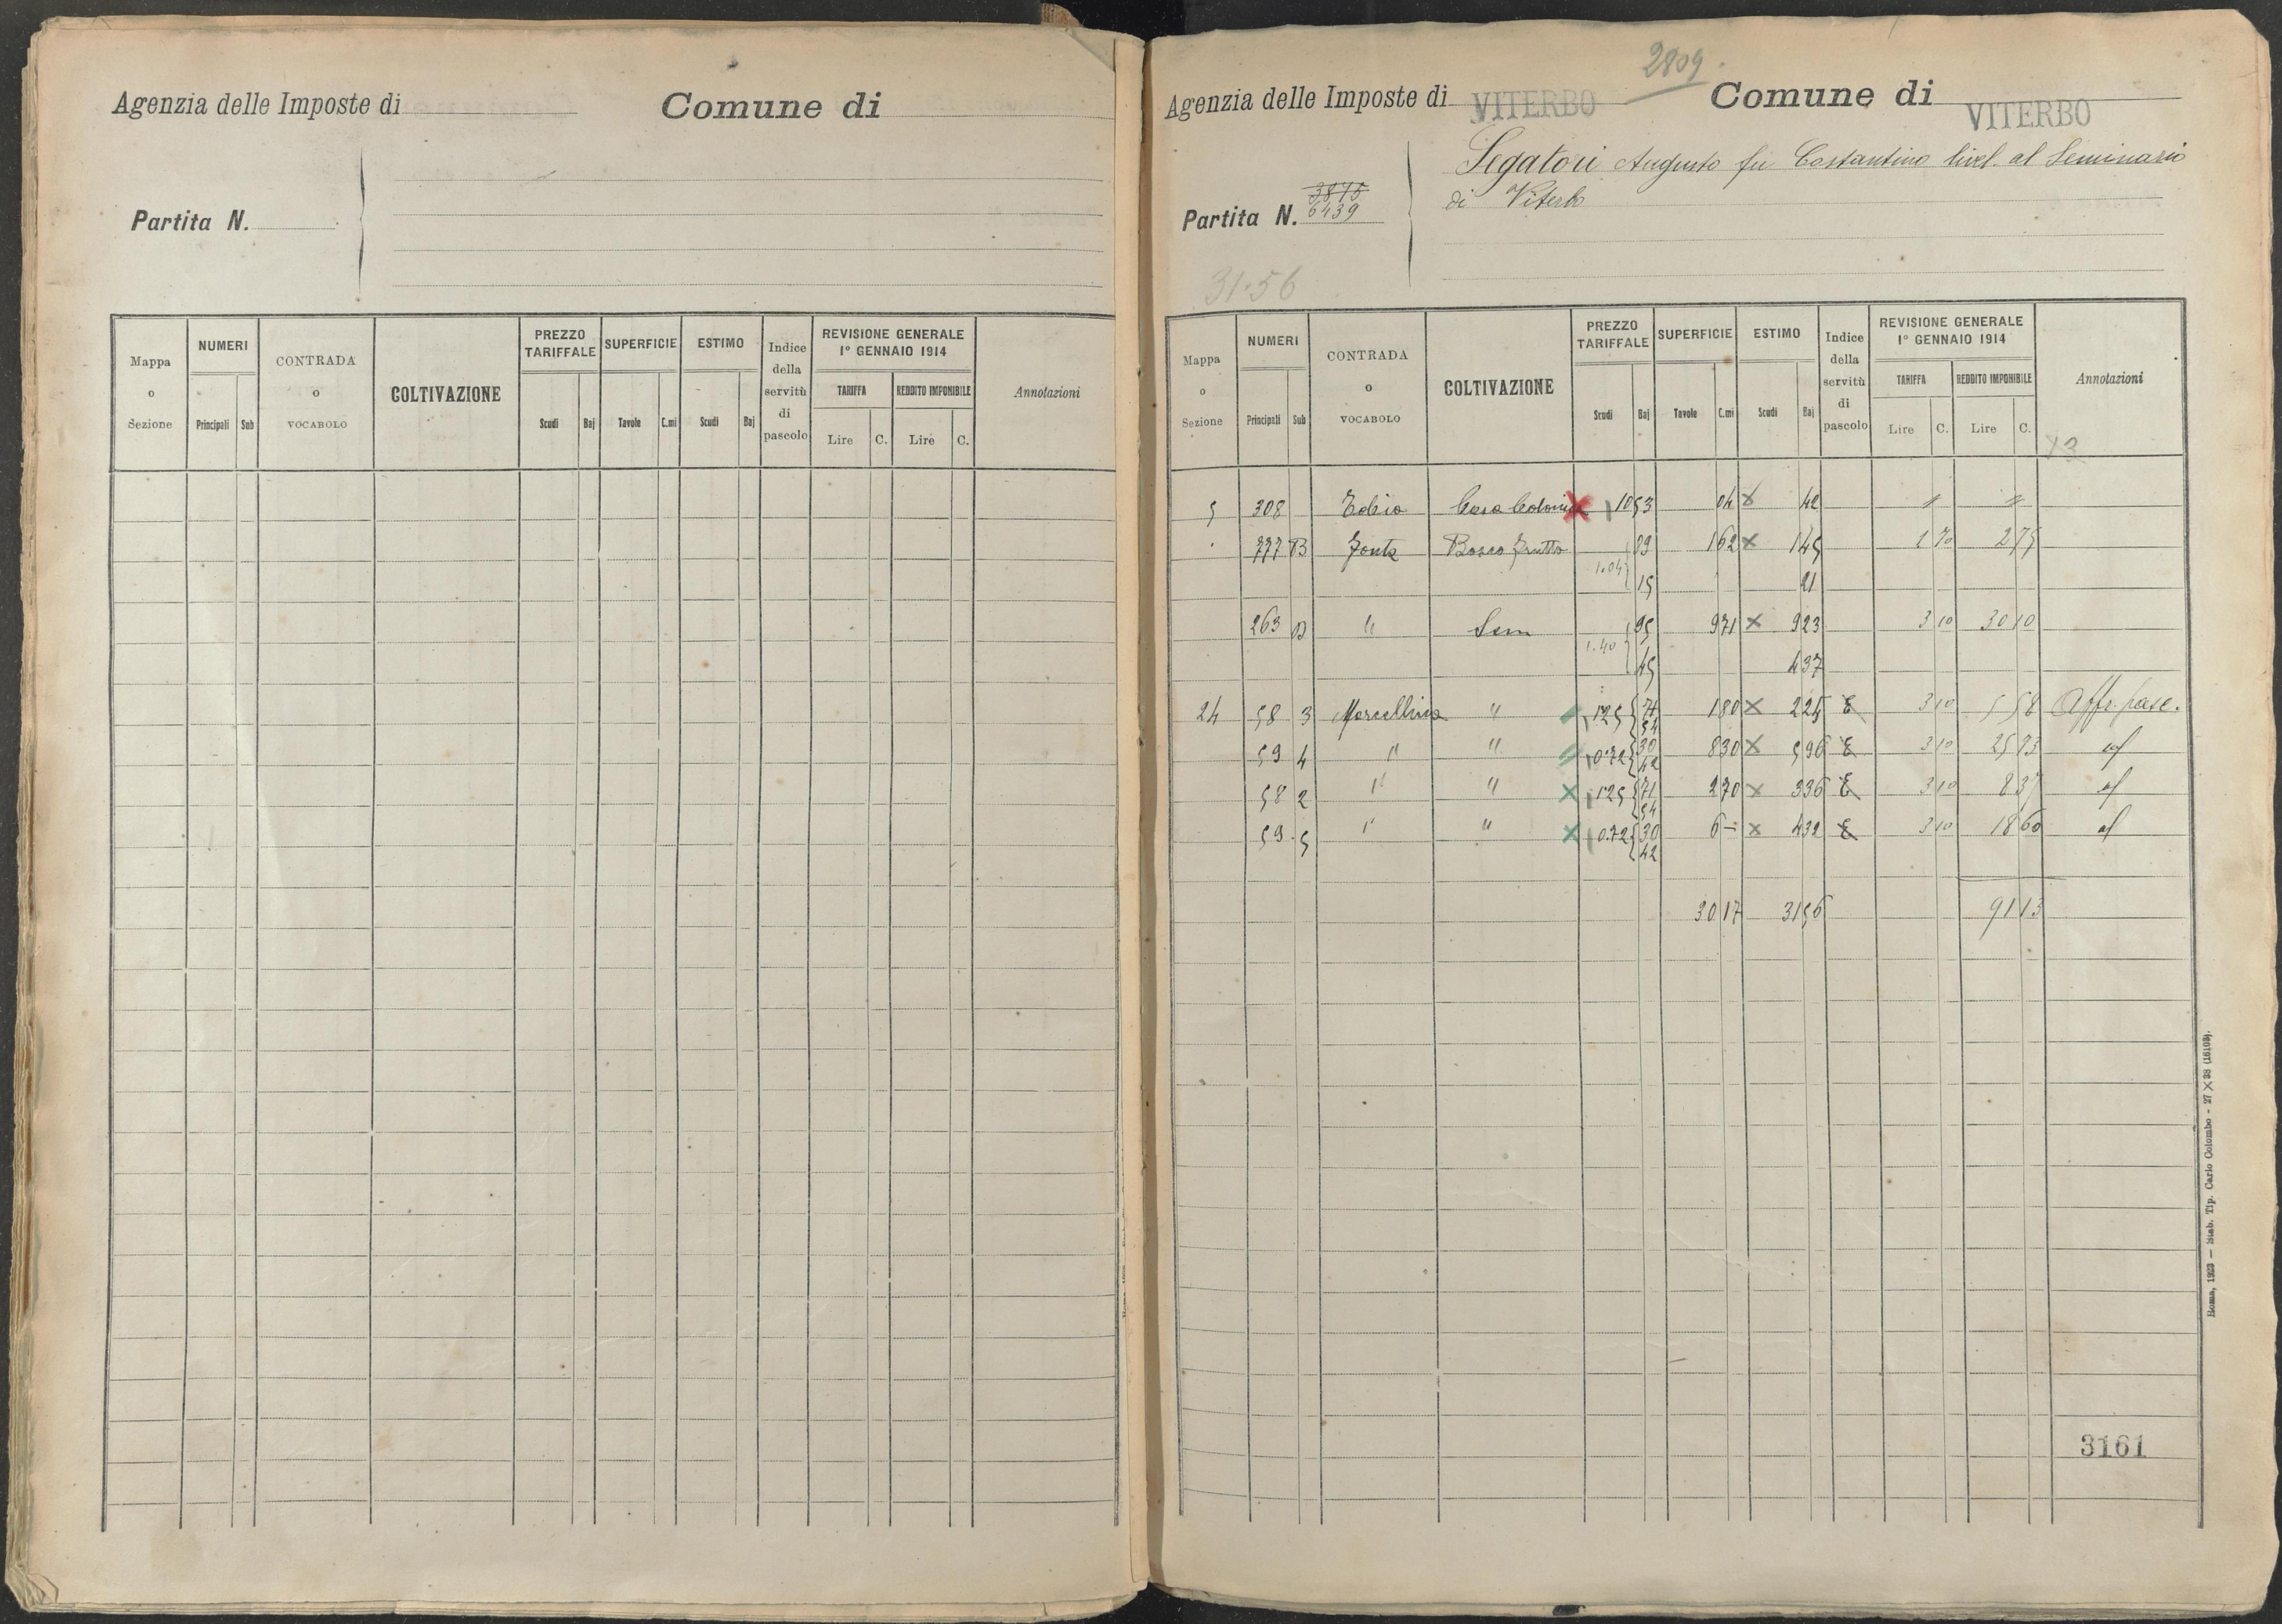 Agenzia delle Imposte di
Comune di
Partita N.
Mappa o Sezione
NUMERI
Principali Sub
CONTRADA o VOCABOLO
COLTIVAZIONE
PREZZO TARIFFALE
Scudi Baj
SUPERFICIE
Tavole C.mi
ESTIMO
Scudi Baj
Indice della servitù di pascolo
REVISIONE GENERALE
1° GENNAIO 1914
TARIFFA REDDITO IMPONIBILE
Lire C. Lire C.
Annotazioni
2809
Agenzia delle Imposte di VITERBO Comune di VITERBO
Segatori Augusto fu Costantino livel. al Seminario
di Viterbo
3875
Partita N. 6439
31.56
Mappa o Sezione
NUMERI
Principali Sub
CONTRADA o VOCABOLO
COLTIVAZIONE
PREZZO TARIFFALE
Scudi Baj
SUPERFICIE
Tavole C.mi
ESTIMO
Scudi Baj
Indice della servitù di pascolo
REVISIONE GENERALE
1° GENNAIO 1914
TARIFFA REDDITO IMPONIBILE
Lire C. Lire C.
Annotazioni
5 308 Casa Colonica 10 53 04 x 42 " "
777 B Bosco frutto 89 1 62 x 1 45 1 70 2 75
1.04 15 21
263 " Sem 95 9 71 x 9 23 3 10 30 10
1.40 45 4 37
24 58 3 Marcellina " 1.25 71 1 80 x 2 25 E 3 10 5 58 Affr. pasc.
54
59 4 " " 0.72 30 8 30 x 5 96 E 3 10 25 73 id
42
58 2 " " 1.25 71 2 70 x 3 36 E 3 10 8 37 id
54
59 5 " " 0.72 30 6 - x 4 32 E 3 10 18 60 id
42
30 17 31 56 91 13
3161
Roma, 1923 — Stab. Tip. Carlo Colombo - 27 X 38 (16103).